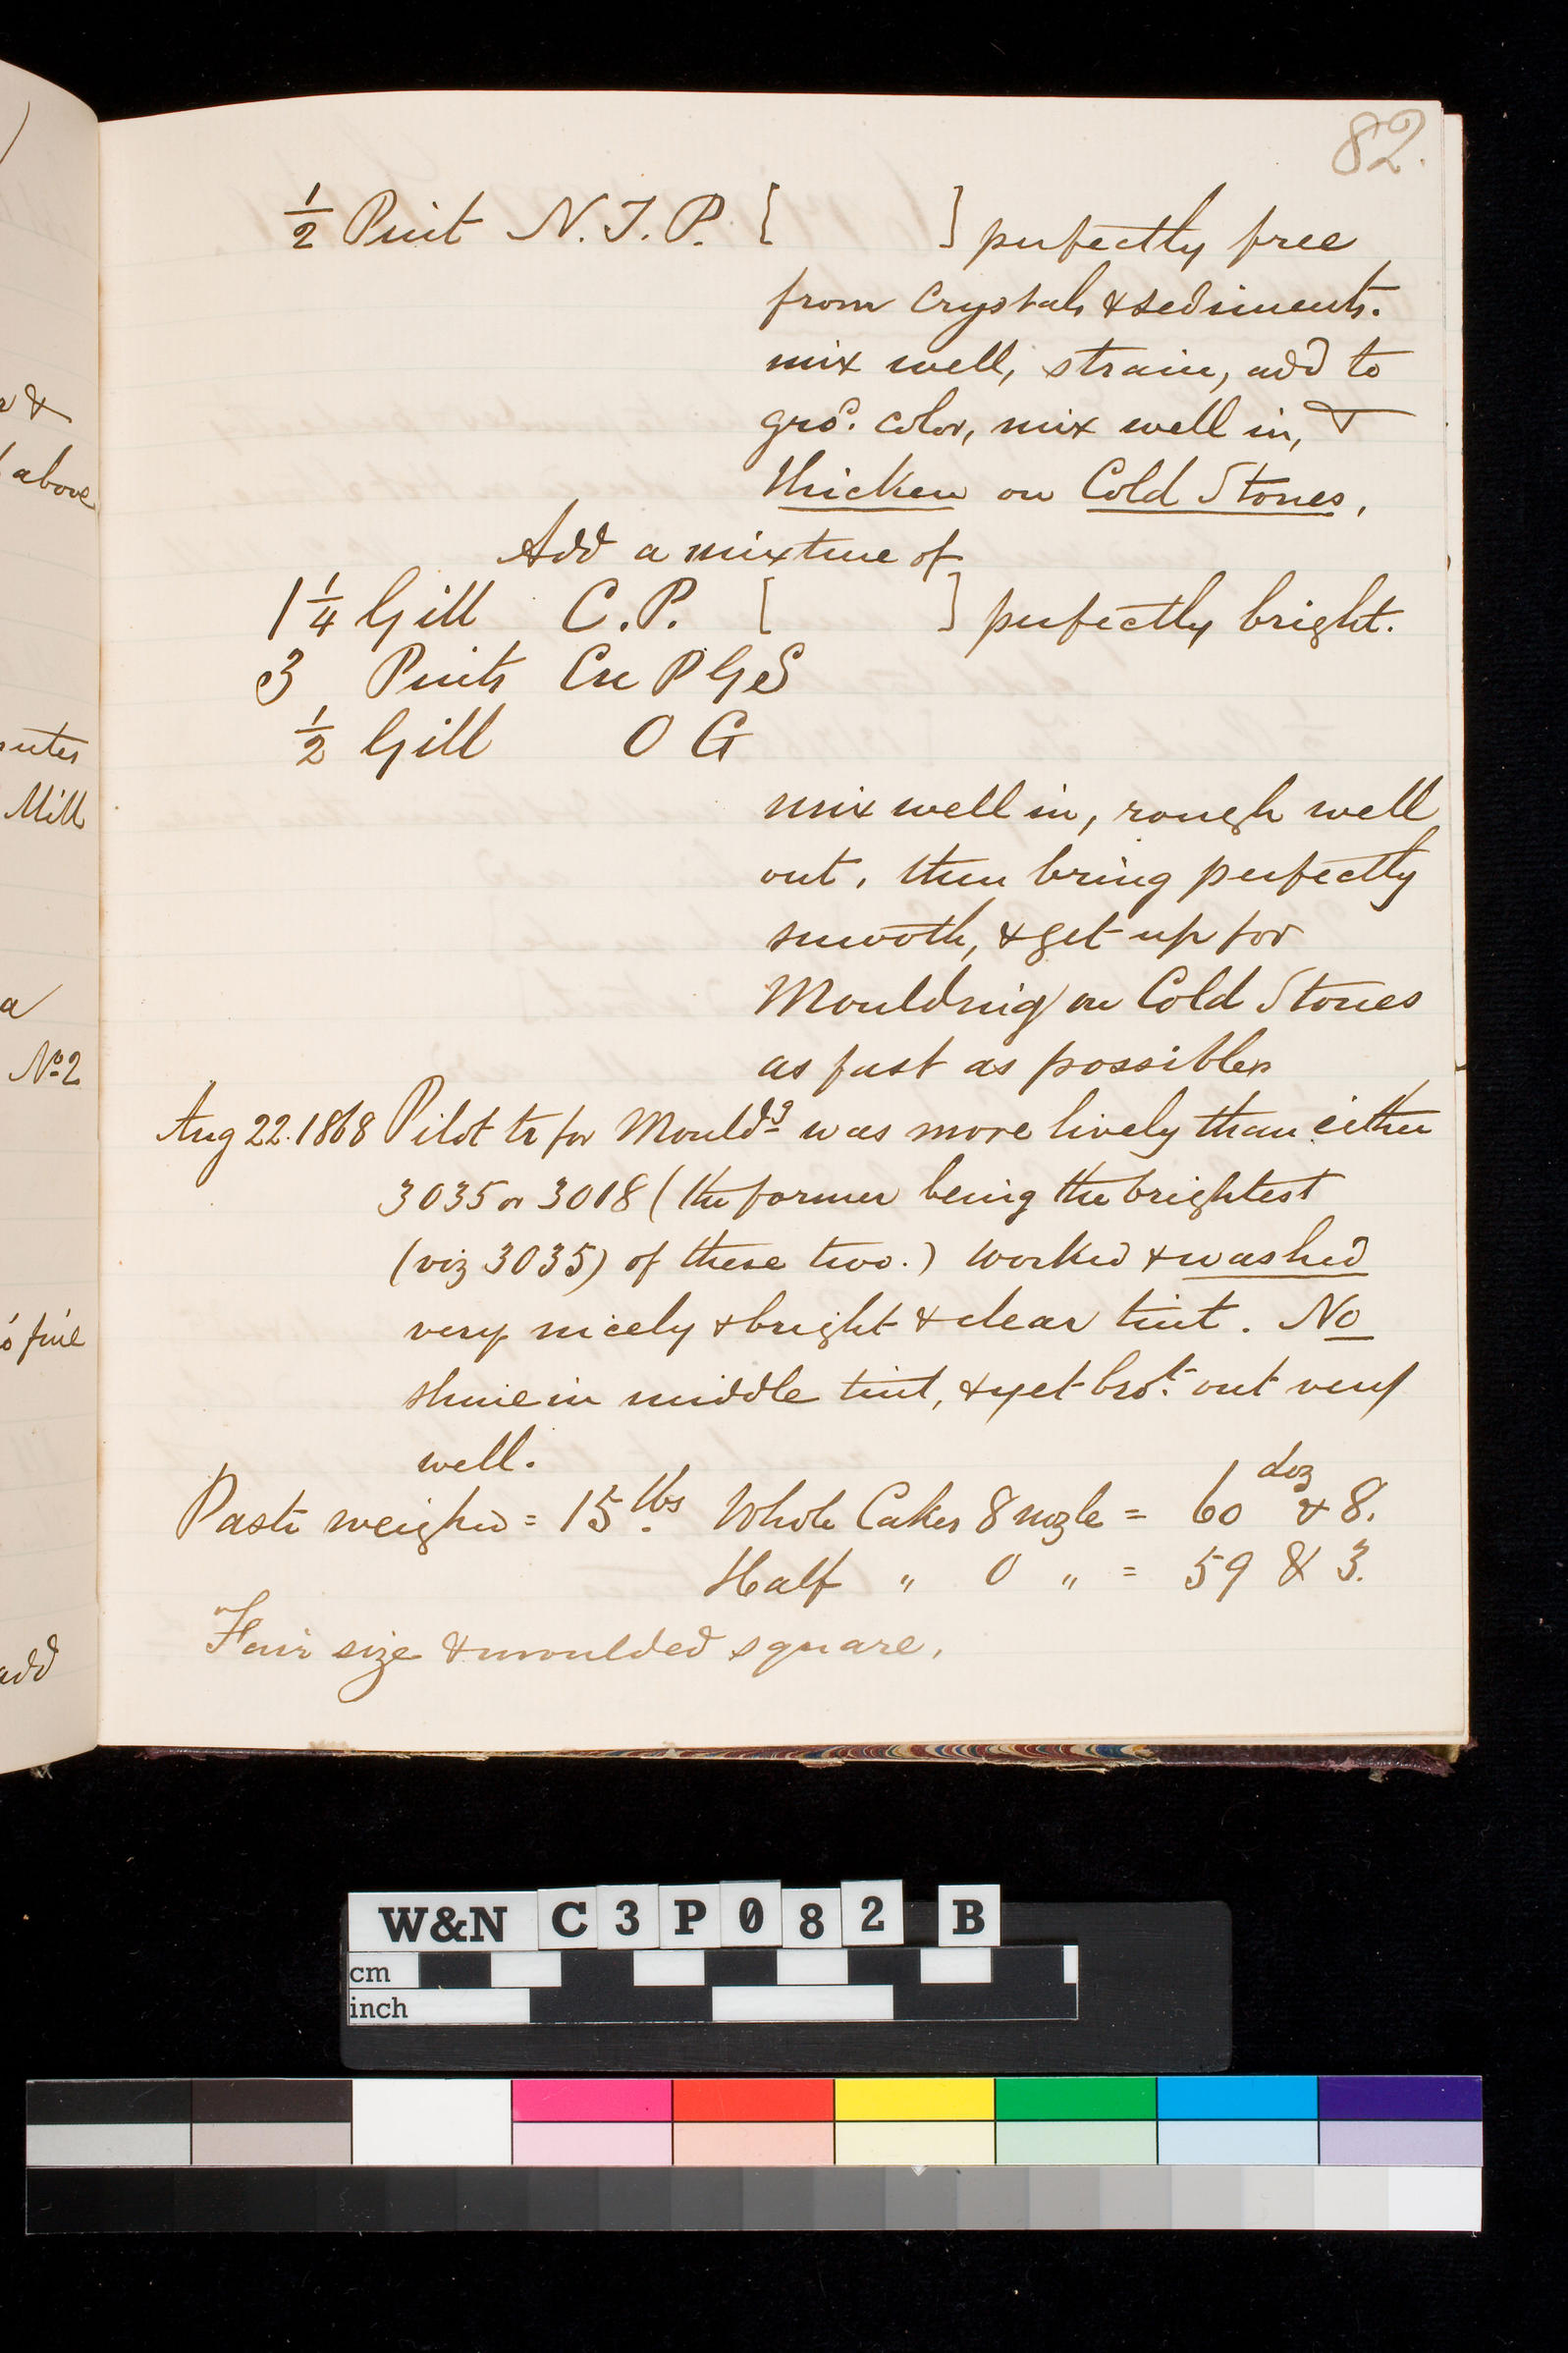 82.
½ Pint N.T.P. [ ] perfectly free
from Crystals & sediments.
mix well, strain, add to
gro.d color, mix well in, &
thicken on Cold Stones,
Add a mixture of
1¼ Gill C.P. [ ] perfectly bright.
3 Pints Cu P G S
½ Gill O G
mix well in, rough well
out, then bring perfectly
smooth, & get up for
Moulding on Cold Stones
as fast as possible
Aug 22. 1868 Pilot tr for Mould.g was more lively than either
3035 or 3018 (the former being the brightest
(viz 3035) of these two.) Worked & washed
very nicely & bright & clear tint. No
shine in middle tint, & yet bro.t out very
well.
Paste weighed = 15 lbs Whole Cakes 8 nozle = 60 doz & 8.
Half " 0 " = 59 & 3.
Fair size & moulded square.
above
Mill
a
No 2
fine
add
W&N C3P082 B
cm
inch